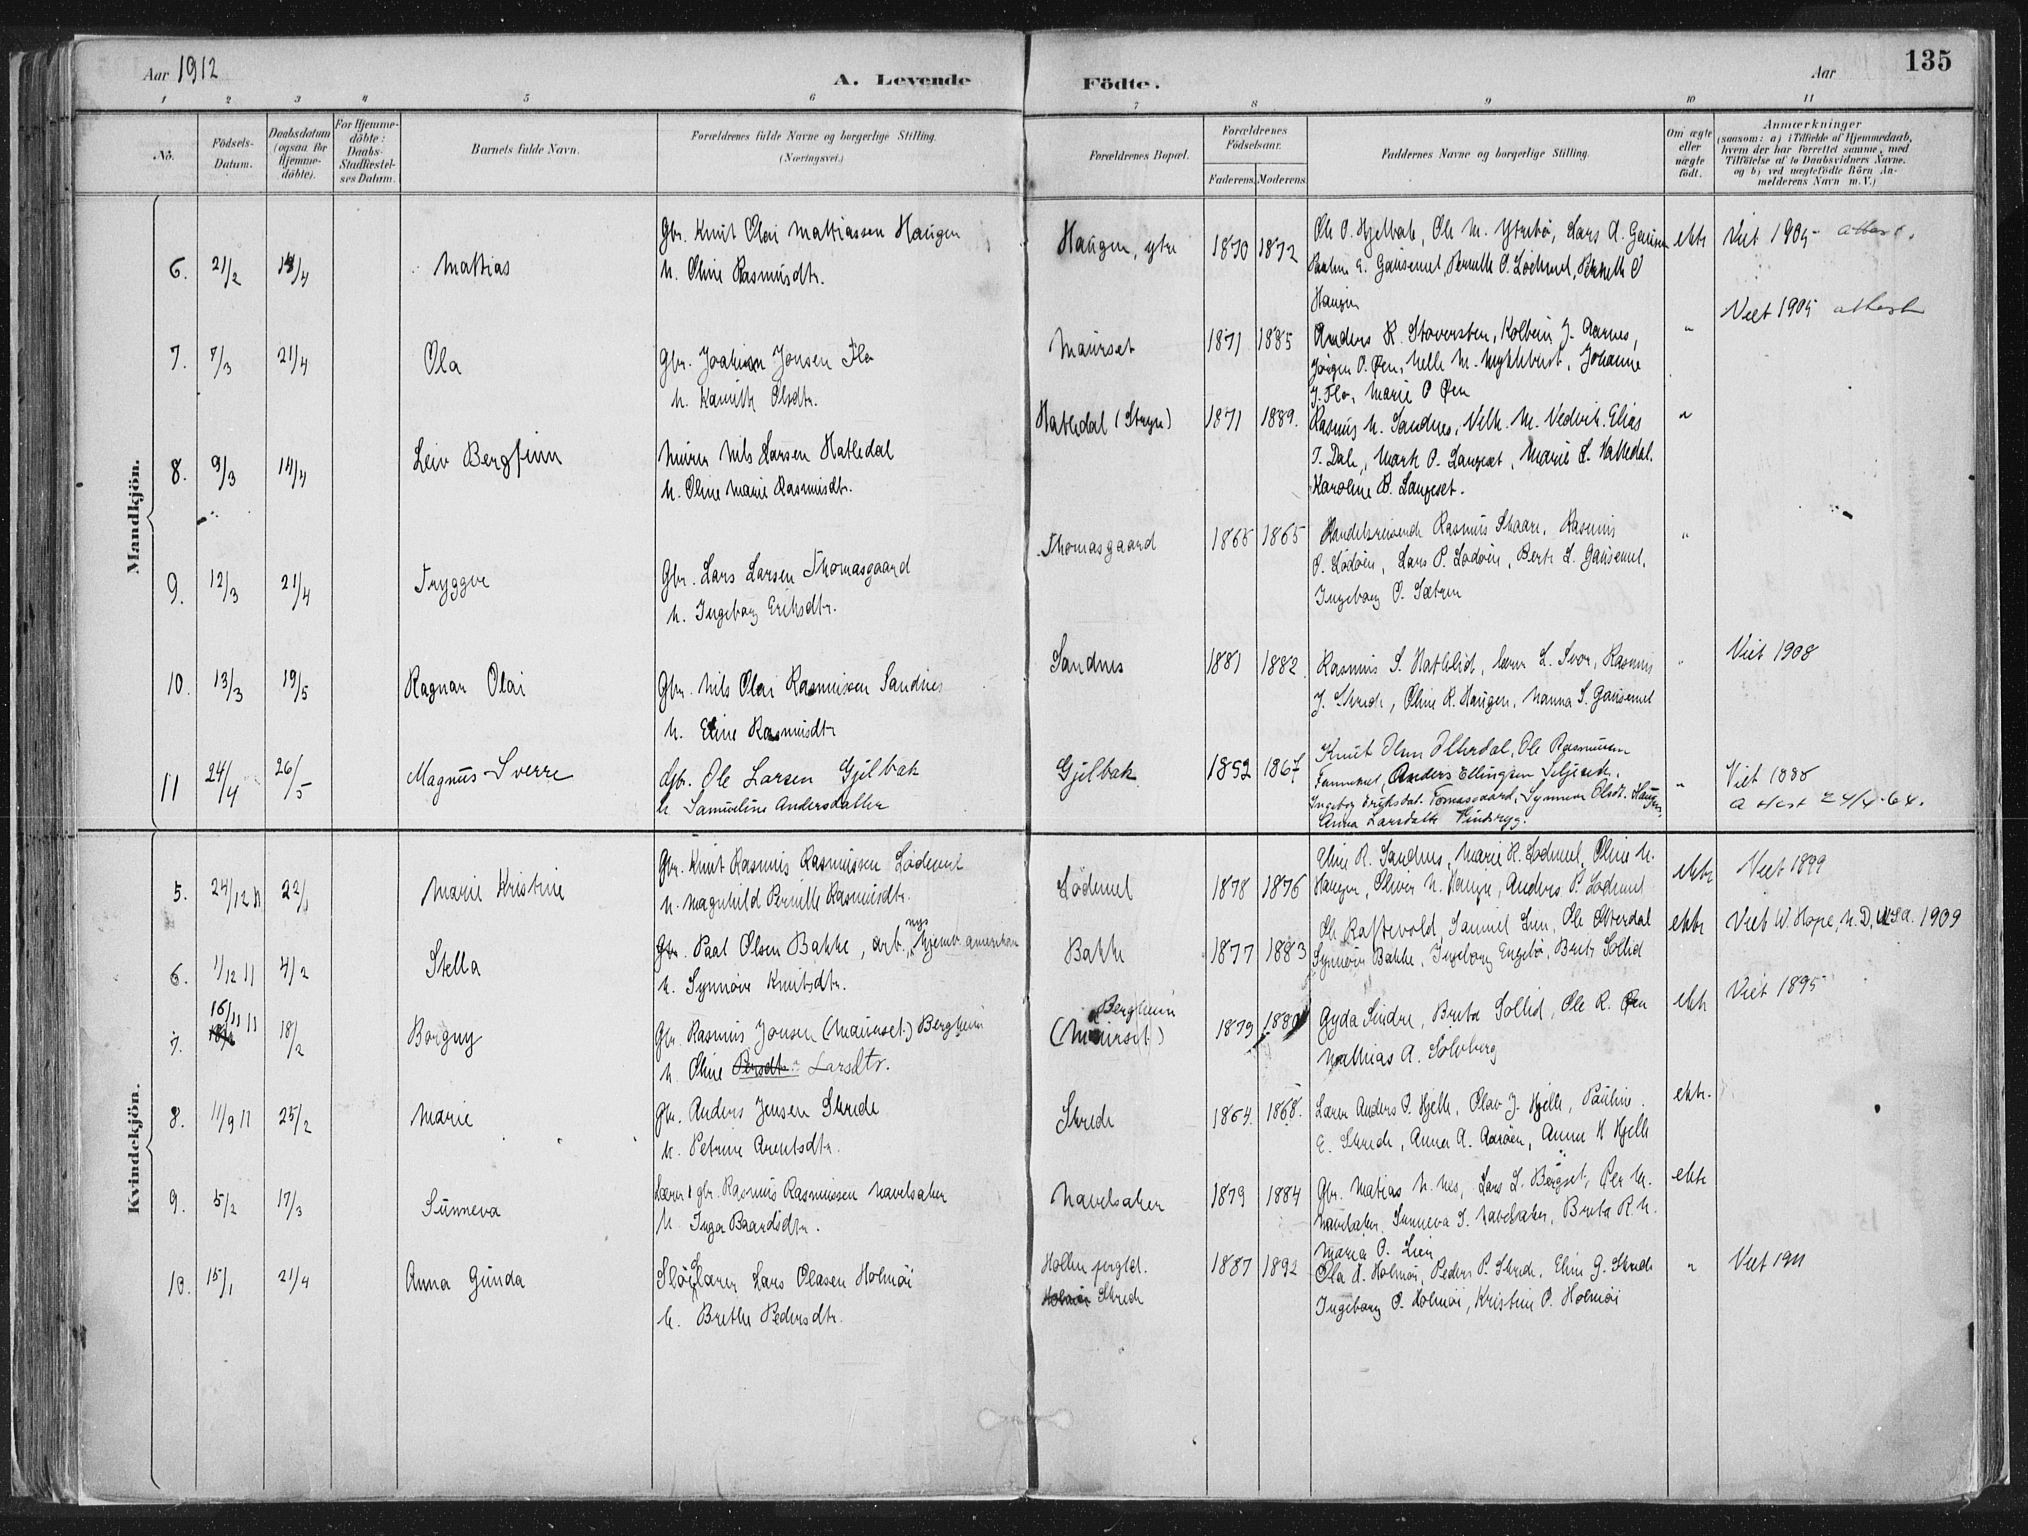 Aar 1912
A. Levende
Födte.
Aar
135
1 2 3 4 5 6 7 8 9 10 11
No.
Födsels-Datum.
Daabsdatum (ogsaa for Hjemme-döbte).
For Hjemme-döbte: Daabs-Stadfæstel-ses Datum.
Barnets fulde Navn.
Forældrenes fulde Navne og borgerlige Stilling. (Næringsvei.)
Forældrenes Bopæl.
Forældrenes Födselsaar.
Faderens. Moderens.
Faddernes Navne og borgerlige Stilling.
Om ægte eller uægte födt.
Anmærkninger
(saasom: a) i Tilfælde af Hjemmedaab, hvem der har forrettet samme, med Tilföielse af to Daabsvidners Navne. og b) ved uægtefödte Börn An-melderens Navn m. V.)
Mandkjön.
6. 21/2 /4 Mattias
Gbr. Knut Olai Mattiassen Haugen
h. Oline Rasmusdtr.
Haugen, ytre 1870 1872
Ole O. Hjelbak, Ole M. Ytrebö, Lars A.
Pauline E. Gausemel, Pernille O. Lodemel, O
Haugen
ekte
Viet 1905 attest.
7. 7/3 21/4 Ola
Gbr. Joakim Jonsen Flo
h. Kamilk Olsdtr.
Maurset 1871 1885
Anders R. Staversten, Kolbein J. Aarnes,
Jörgen O. Öen, Nelle M. Myklebust, Johanne
J. Flo, Marie O Öen
"
Viet 1905 attest
8. 9/3 14/4 Leiv Bergfinn
Murer Nils Larsen Hatledal
h. Oline Marie Rasmusdtr.
Hatledal (Stryn) 1871 1889.
Rasmus M. Sandnes, Vilh. M. Vedvik. Elias
T. Dale, Marte P. Langeset, Marie L. Hatledal.
Karoline B. Langeset.
"
9. 12/3 21/4 Tryggve
Gbr. Lars Larsen Thomasgaard
h. Ingeborg Eriksdtr.
Thomasgaard 1865 1865
Handelsreisende Rasmus Skaare, Rasmus
O. Lödöin, Lars P. Lodöin, Berte L. Gausemel,
Ingeborg O. Sætren
"
10. 13/3 19/5 Ragnar Olai
Gbr. Nils Olai Rasmussen Sandnes
h. Eline Rasmusdtr
Sandnes 1881 1882
Rasmus S. Hatlelid, L. Svor, Rasmus
J. Skrede, Oline R. Haugen, Nanna S. Gausemel
"
Viet 1908
11 24/4 26/5 Magnus Sverre
Gbr. Ole Larsen Gjelbak
h. Samueline Andersdatter
Gjelbak 1852 1867
Knut Olsen Otterdal, Ole Rasmussen
Anders Ellingsen
Ingebor Eriksdat. Tomasgaard, Synneve Olsdt. Haugen,
Anna Larsdatter
"
Viet 1888
attest 24/4-64.
Kvindekjön.
5. 24/12 11 22/1 Marie Kristine
Gbr. Knut Rasmus Rasmussen Lödemel
h. Magnhild Pernille Rasmusdtr.
Lödemel 1878 1876
Eline R. Sandnes, Marie R. Lodemel, Oline M.
Haugen, Oliver M. Haugen, Anders P. Lodemel
ekte
Viet 1899
6. 1/12 11 4/2 Stella
Gbr. Paal Olsen Bakke, arb., nys hjemv. amerikan
h. Synnöve Knutsdtr.
Bakke 1877 1883
Ole Raftevold, Samuel Lien, Ole Otterdal
Synnöve Bakke, Ingeborg Engebö, Brite Sollid
ekte
Viet W. Hope, N. D, U.S.A. 1909
7. 16/11 11 18/2 Borgny
Gbr. Rasmus Jonsen (Maurset) Bergheim
h. Oline Persdtr. Larsdtr.
Bergheim
(Maurset) 1879 1880
Gyda Sindre, Brita Sollid, Ole R. Öen
Mathias A. Solvberg
ekte
Viet 1895
8. 11/9 11 25/2 Marie
Gbr. Anders Jensen Skrede
h. Petrine Arentsdtr.
Skrede 1864. 1868.
Lærer Anders P. Hjelle, Olav J. Hjelle, Pauline
E. Skrede, Anna A. Aaröen, Anna H Hjelle
ekte.
9. 5/2 17/3 Sunneva
Lærer i gbr. Rasmus Rasmussen Navelsaker
h. Inga Baardsdtr.
Navelsaker 1879 1884
Gbr. Matias N. Nes, Lars L. Bergset, Per M.
Navelsaker, Sunneva J. Navelsaker, Brita R. N.
ekte
10. 15/1 21/4 Anna Gunda
Slöilærer Lars Olasen Holmöi
h. Brithe Pedersdtr.
Skrede 1887 1892
Maria O. Lien
Ola A. Holmöi, Peder P. Skrede, Eline G. Skrede
Ingeborg O. Holmöi, Kristine P. Holmöi
"
Viet 1911